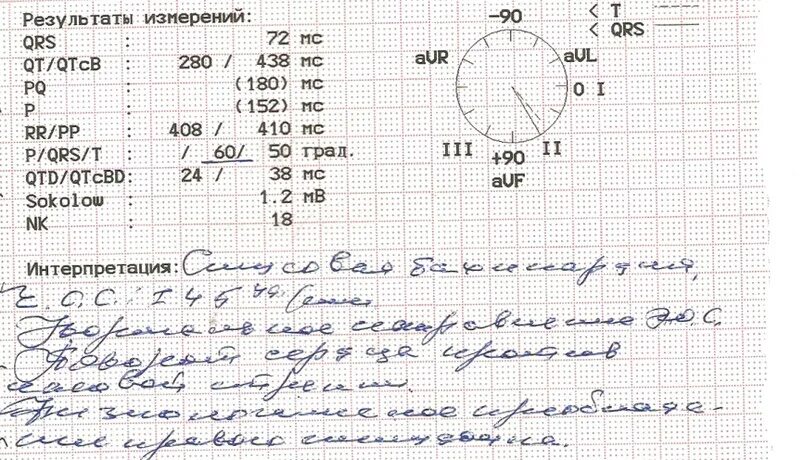 Результаты измерений:
QRS : 72 мс
QT/QTcB : 280 / 438 мс
PQ : (180) мс
P : (152) мс
RR/PP : 408 / 410 мс
P/QRS/T : / 60/ 50 град.
QTD/QTcBD: 24 / 38 мс
Sokolow : 1.2 мВ
NK : 18
< T
< QRS
-90
aVR
aVL
0 I
III
+90
II
aVF
Интерпретация: Синусовая тахикардия,
Ч.С.С. 145 уд/мин
Нормальное направление Э.О.С.
Поворот сердца против
часовой стрелки.
Физиологическое преоблада-
ние правого желудочка.